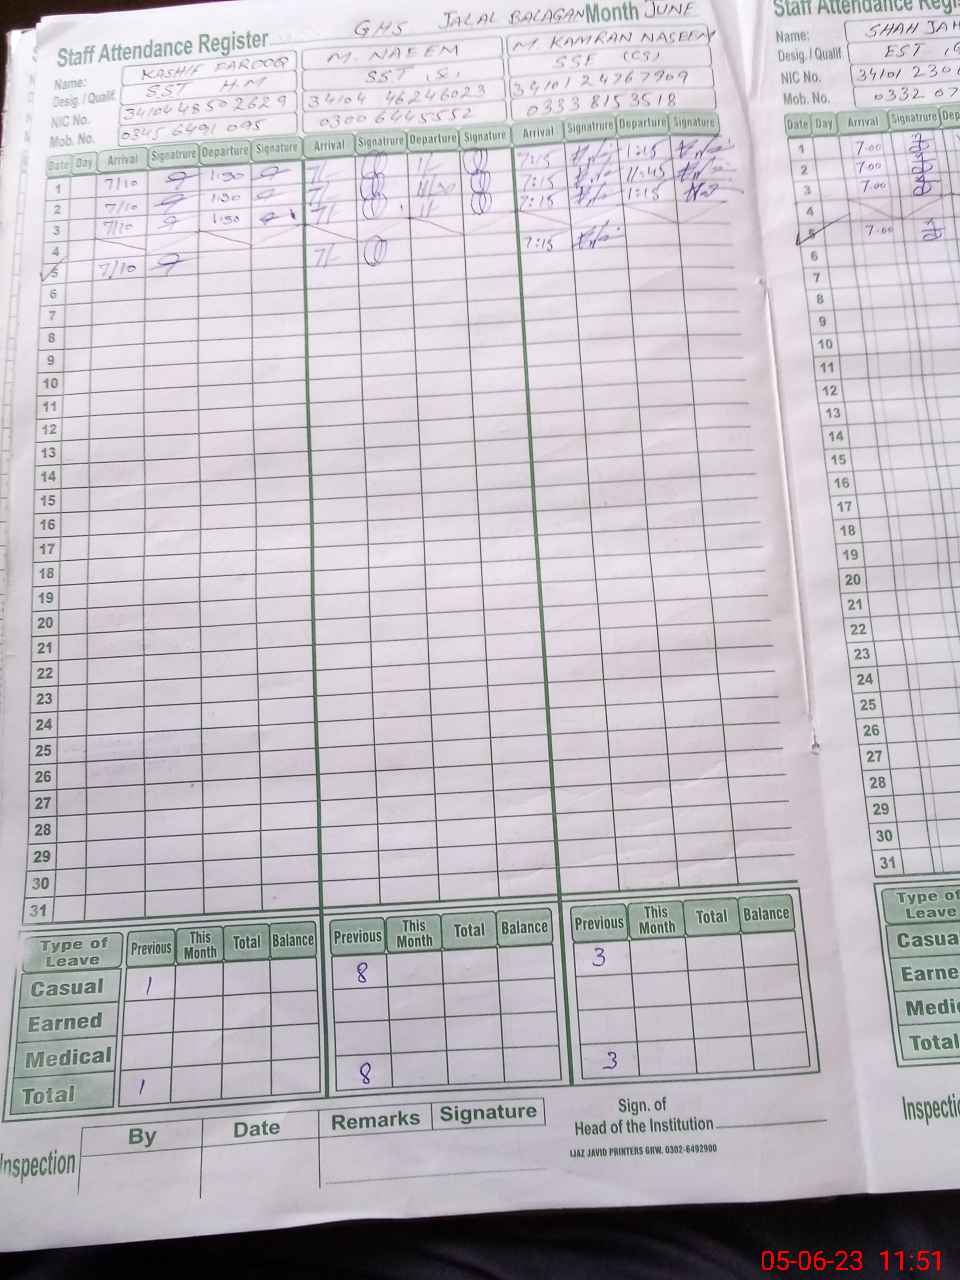 Staff Attendance Register GHS JALAL BALAGAN Month JUNE
Name: KASHIF FAROOQ M. NAEEM M. KAMRAN NASEEM
Desig. / Qualif. SST H.M SST S. SSE (CS)
NIC No. 34104 48502629 34104 46246023 34101 24267909
Mob. No. 0345 6491 095 0300 6445552 0333 8153518
Date Day Arrival Signatrure Departure Signature Arrival Signatrure Departure Signature Arrival Signatrure Departure Signature
1 7/10 1:30 7/- 7:15 1:15
2 7/10 1:30 7/- 7:15 11:45
3 7/10 1:30 7/- 7:15 1:15
4
5 7/10 7/- 7:15
6
7
8
9
10
11
12
13
14
15
16
17
18
19
20
21
22
23
24
25
26
27
28
29
30
31
Type of Leave Previous This Month Total Balance Previous This Month Total Balance Previous This Month Total Balance
Casual 1 8 3
Earned
Medical
Total 1 8 3
Inspection By Date Remarks Signature
Sign. of
Head of the Institution
IJAZ JAVID PRINTERS GRW. 0302-6492900
Staff Attendance Regis
Name: SHAH JAH
Desig. / Qualif. EST
NIC No. 34101 2306
Mob. No. 0332 07
Date Day Arrival Signatrure Dep
1 7.00
2 7.00
3 7.00
4
5 7.00
6
7
8
9
10
11
12
13
14
15
16
17
18
19
20
21
22
23
24
25
26
27
28
29
30
31
Type of
Leave
Casua
Earne
Medic
Total
Inspectio
05-06-23 11:51